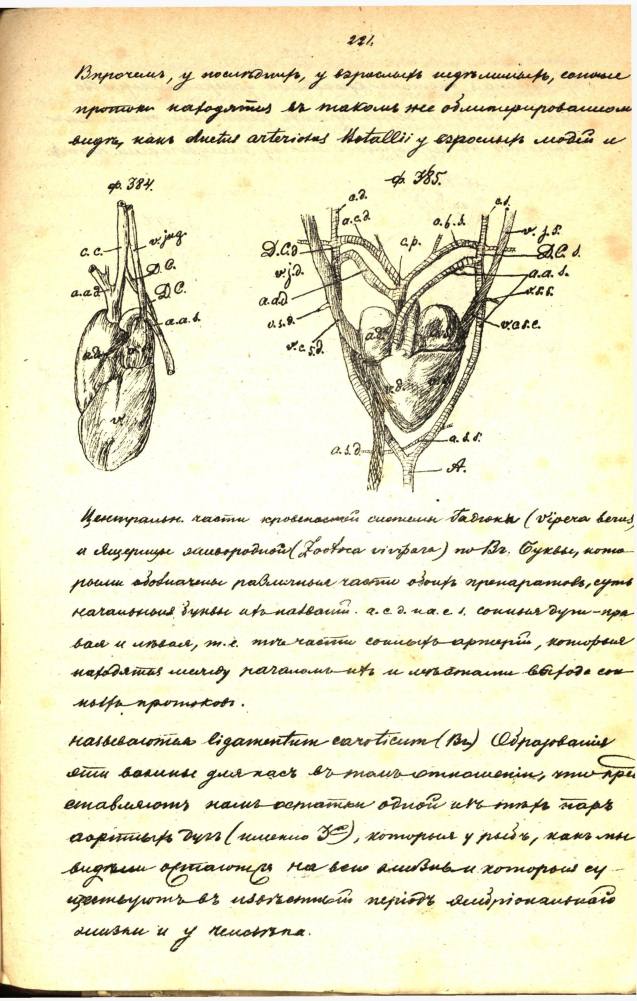 221.
Впрочемъ, у послѣднихъ, у взрослыхъ недѣлимыхъ, сонные
протоки находятся въ такомъ же облитерированномъ
видѣ, какъ ductus arteriosus Botallii у взрослыхъ людей и
ф. 384.
ф. 385.
c.c. v.jug.
D.C.
a.ad. D.C.
a.a.s.
ad.
v.
c.d. c.s.
a.c.d a.c.s. v.j.s.
D.C.d c.p. D.C.s.
v.j.d. a.a.s.
a.ad v.s.s.
v.s.d. v.c.s.s.
v.c.s.d. ad.
v.d.
a.s.d. a.s.s.
A.
Центральн. части кровеносной системы Гадюки (Vipera berus)
и Ящерицы живородной (Zootoca vivipara) по Br. Буквы, кото-
рыми обозначены различныя части обоихъ препаратовъ, суть
начальныя буквы ихъ названій. a.c.d. и a.c.s. сонныя дуги-пра-
вая и лѣвая, т.е. тѣ части сонныхъ артерій, которыя
находятся между началомъ ихъ и мѣстами выхода сон-
ныхъ протоковъ.
называются ligamentum caroticum (Br.) Образованія
эти важны для насъ въ томъ отношеніи, что пред
ставляютъ намъ остатки одной изъ тѣхъ паръ
аортныхъ дугъ (именно 3ей), которыя у рыбъ, какъ мы
видѣли остаются на всю жизнь и которыя су-
ществуютъ въ извѣстный періодъ эмбріональной
жизни и у человѣка.